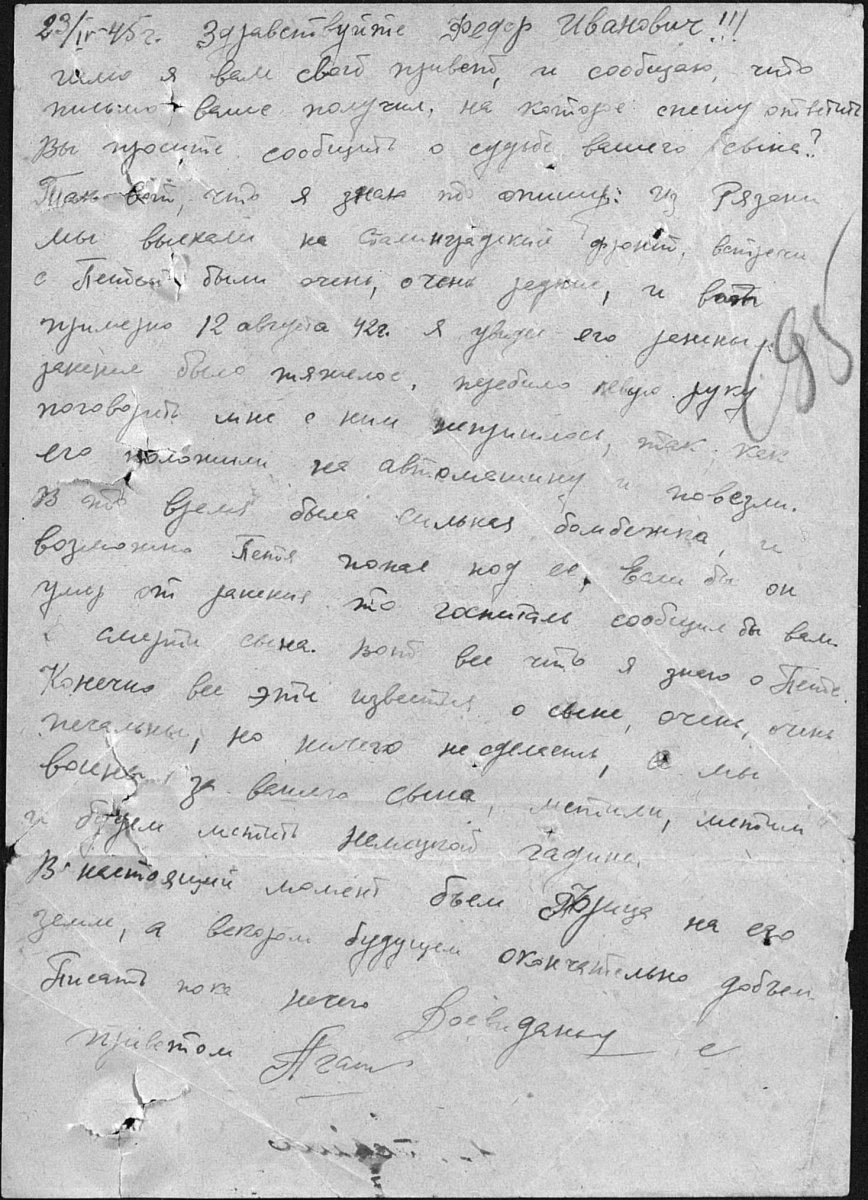 23/IV-45г. Здравствуйте Федор Иванович!!!
шлю я вам свой привет, и сообщаю, что
письмо ваше получил, на которое спешу ответить
Вы просите сообщить о судьбе вашего сына?
Так вот, что я знаю то опишу: из Рязани
мы выехали на Сталинградский фронт, встречи
с Петей были очень, очень редкие, и вот
примерно 12 августа 42г. я увидел его раненым,
ранение было тяжелое, перебило левую руку
поговорить мне с ним непришлось, так как
его положили на автомашину и повезли.
В то время была сильная бомбежка, и
возможно Петя попал под ее, если бы он
умер от ранения то госпиталь сообщил бы вам
о смерти сына. вот все что я знаю о Пете.
Конечно все эти известия о сыне, очень, очень
печальны, но ничего несделаешь, а мы
воины за вашего сына, мстили, мстим
и будем мстить немецкой гадине.
В настоящий момент бьем Фрица на его
земле, а вскором будущем окончательно добьем
Писать пока нечего Досвиданья с
приветом
95